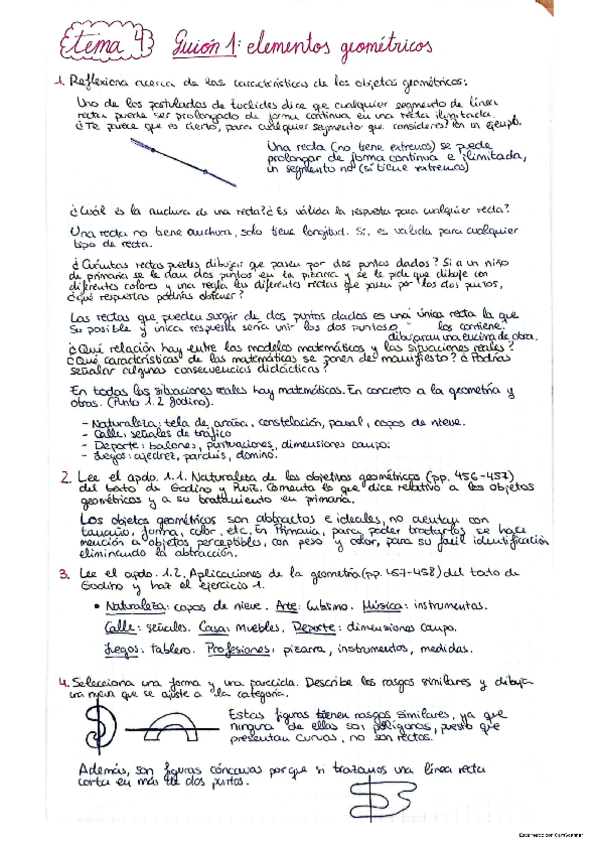 tema 4 Guión 1: elementos geométricos
1. Reflexiona acerca de las características de los objetos geométricos:
Uno de los postulados de Euclides dice que cualquier segmento de línea
recta puede ser prolongado de forma continua en una recta ilimitada.
¿Te parece que es cierto, para cualquier segmento que consideres? Pon un ejemplo.
Una recta (no tiene extremos) se puede
prolongar de forma continua e ilimitada,
un segmento no (sí tiene extremos)
¿Cuál es la anchura de una recta? ¿Es válida la respuesta para cualquier recta?
Una recta no tiene anchura, solo tiene longitud. Sí, es valida para cualquier
tipo de recta.
¿Cuántas rectas puedes dibujar que pasen por dos puntos dados? Si a un niño
de primaria se le dan dos puntos en la pizarra y se le pide que dibuje con
diferentes colores y una regla las diferentes rectas que pasen por los dos puntos,
¿qué respuestas podrías obtener?
Las rectas que pueden surgir de dos puntos dados es una única recta la que
su posible y única respuesta sería unir los dos puntos o " los contiene.
dibujarían una encima de otra.
¿Qué relación hay entre los modelos matemáticos y las situaciones reales?
¿Qué características de las matemáticas se ponen de manifiesto? ¿Podrías
señalar algunas consecuencias didácticas?
En todas las situaciones reales hay matemáticas. En concreto a la geometría y
otras. (Punto 1.2 Godino).
- Naturaleza: tela de araña, constelación, panal, copos de nieve.
- Calle: señales de tráfico
- Deporte: balones, puntuaciones, dimensiones campo.
- Juegos: ajedrez, parchís, dominó.
2. Lee el apdo. 1.1. Naturaleza de los objetivos geométricos (pp. 456-457)
del texto de Godino y Ruiz. Comenta lo que dice relativo a los objetos
geométricos y a su tratamiento en primaria.
Los objetos geométricos son abstractos e ideales, no cuentan con
tamaño, forma, color, etc. En Primaria, para poder tratarlos se hace
mención a objetos perceptibles, con peso y color, para su fácil identificación
eliminando la abstracción.
3. Lee el apdo. 1.2. Aplicaciones de la geometría (pp. 457-458) del texto de
Godino y haz el ejercicio 1.
• Naturaleza: copos de nieve. Arte: Cubismo. Música: instrumentos.
Calle: señales. Casa: Muebles. Deporte: dimensiones campo.
Juegos: tablero. Profesiones: pizarra, instrumentos, medidas.
4. Selecciona una forma y una parecida. Describe los rasgos similares y dibuja
una nueva que se ajuste a la categoría.
Estas figuras tienen rasgos similares, ya que
ninguna de ellas son polígonos, puesto que
presentan curvas, no son rectos.
Además, son figuras cóncavas porque si trazamos una línea recta
corta en más de dos puntos.
Escaneado con CamScanner